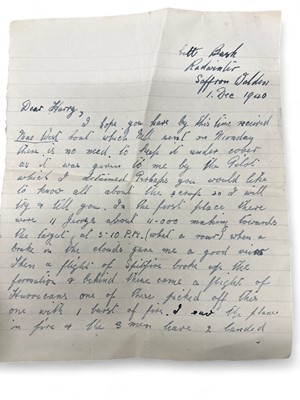 Bush
Radwinter
Saffron Walden
1. Dec 1940
Dear Harry,
I hope you have by this time received
which Nell sent on Monday
there is no need to keep it under cover
as it was given to me by the Pilot
which I detained Perhaps you would like
to know all about the scrap so I will
try & tell you. In the first place there
were 11 Jerrys about 11-000 making towards
the target at 3-10 P.M. (what a row) when a
brake in the clouds gave me a good view
Then a flight of Spitfire broke up the
formation & behind there came a flight of
Hurricanes one of these picked off this
one with 1 burst of fire. I saw the plane
in fire & the 3 men leave 2 landed